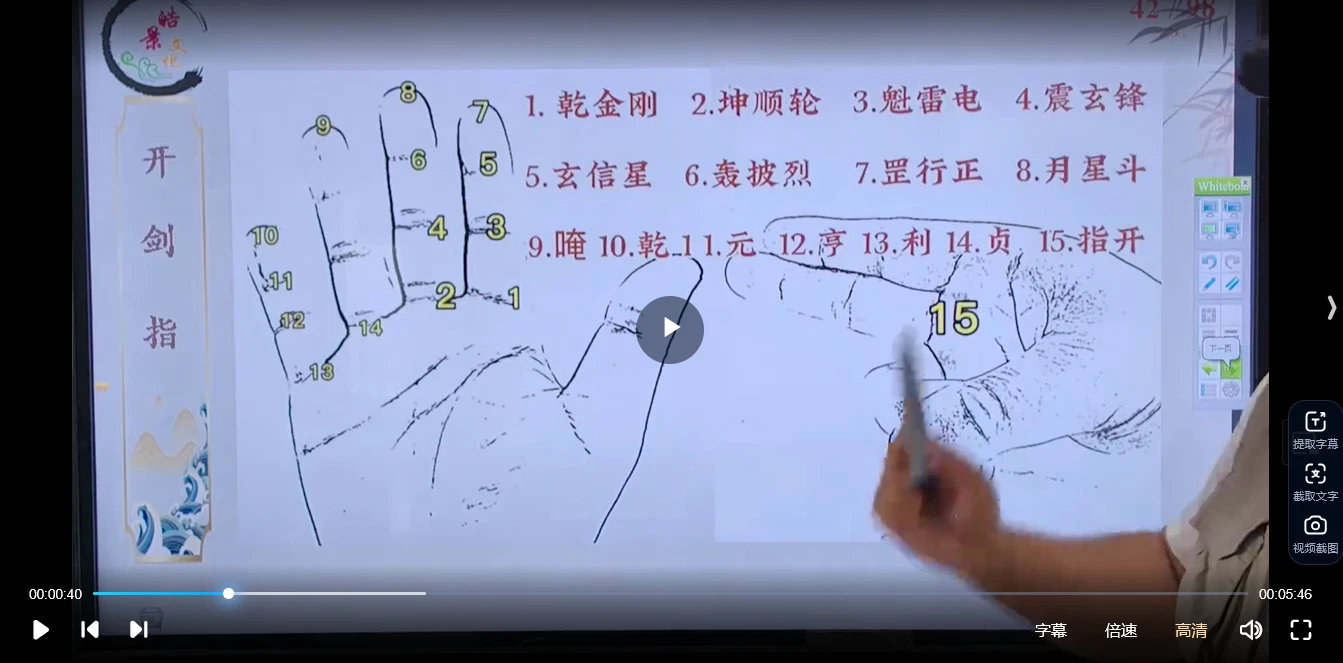 皓景文化
42 / 98
开剑指
1. 乾金刚 2.坤顺轮 3.魁雷电 4.震玄锋
5.玄信星 6.轰披烈 7.罡行正 8.月星斗
9.唵 10.乾 11.元 12.亨 13.利 14.贞 15.指开
8
7
9
6
5
10
4
3
11
2
1
12
14
13
15
Whiteboa
下一页
提取字幕
截取文字
视频截图
00:00:40
00:05:46
字幕 倍速 高清